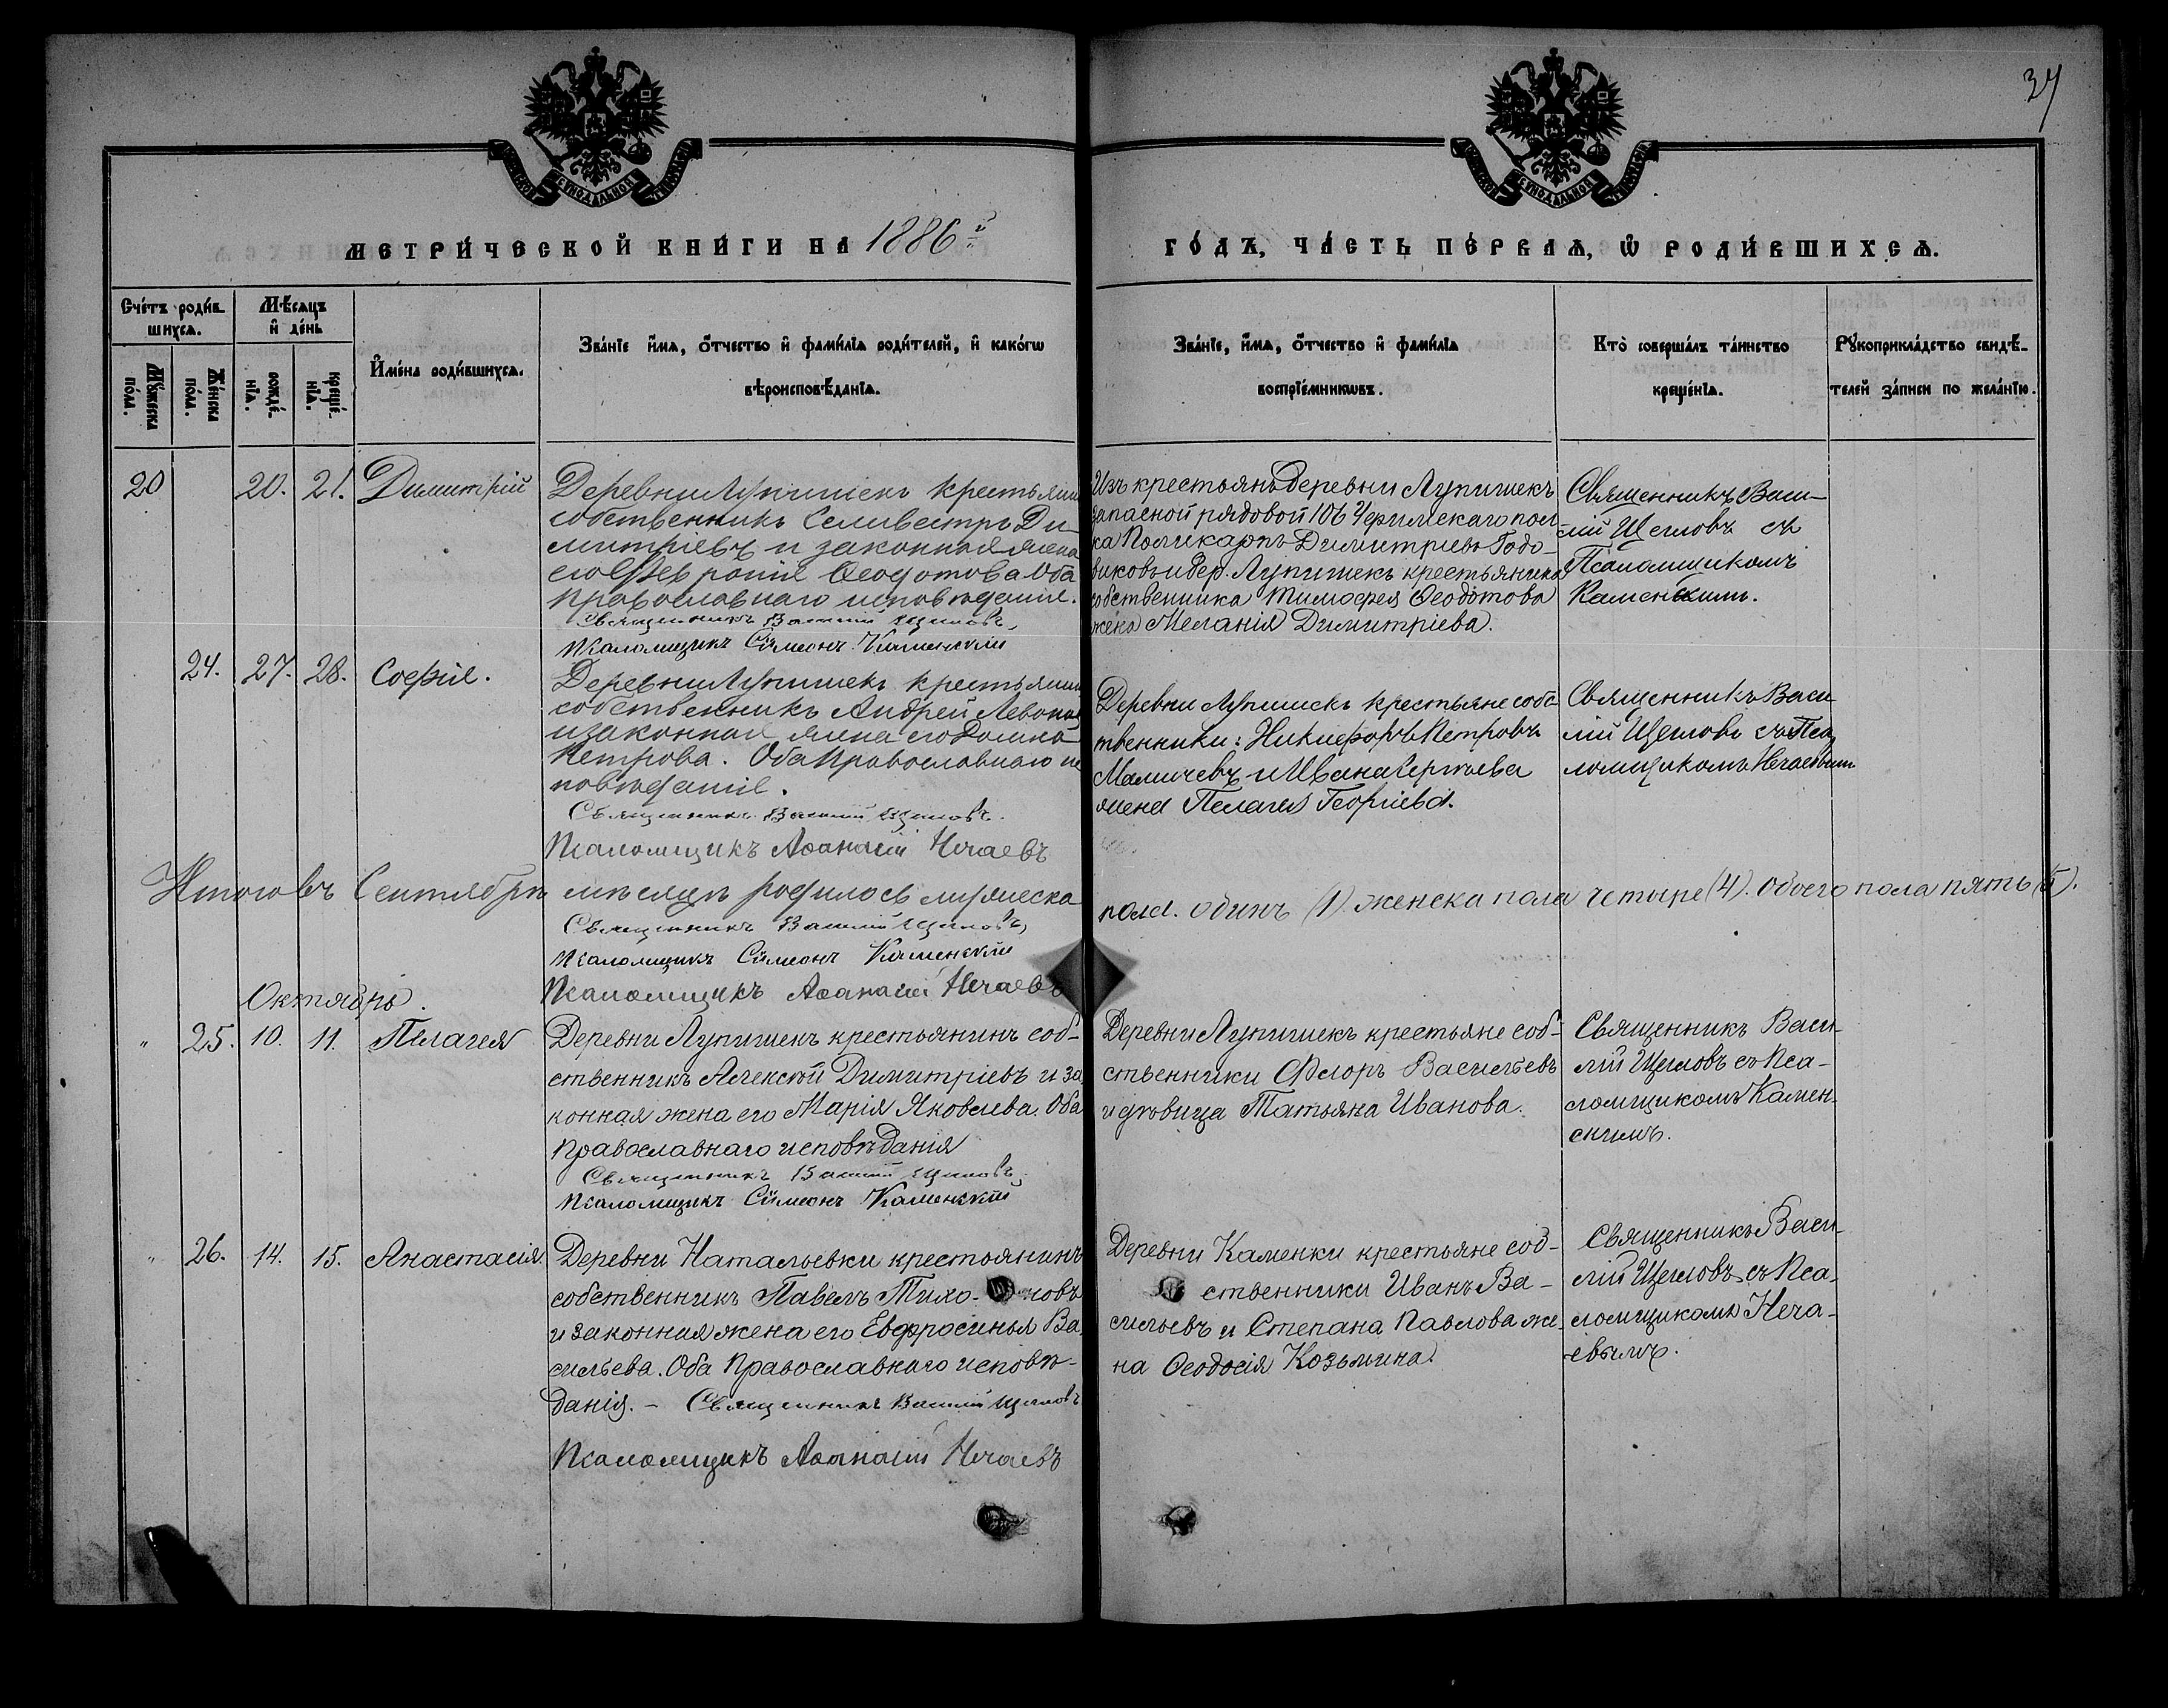 34
МЕТРИ́ЧЕСКОЙ КНИ́ГИ НА 1886й
ГО́ДЪ, ЧА́СТЬ ПЕ́РВАѦ, Ѡ҆ РОДИ́ВШИХСѦ.
Сче́тъ роди́в-
шихсѧ.
Мꙋ́жеска по́ла.
Же́нска по́ла.
Мѣ́сѧцъ
и҆ де́нь
рожде́-нїѧ.
креще́-нїѧ.
И҆мена̀ роди́вшихсѧ.
Зва́нїе и҆́мѧ, ѻ҆́тчество и҆ фами́лїѧ роди́телей, и҆ како́гѡ
вѣроисповѣ́данїѧ.
Зва́нїе, и҆́мѧ, ѻ҆́тчество и҆ фами́лїѧ
воспрїе́мникѡвъ.
Кто̀ соверша́лъ та́инство
креще́нїѧ.
Рꙋкоприкла́дство свидѣ́-
телей за́писи по жела́нїю.
20 20. 21. Димитрій
Деревни Лупишекъ крестьянинъ
собственникъ Селивестръ Ди-
митріевъ и законная жена
его Ефросинія Ѳеодотова Оба
православнаго исповѣданія.
Священникъ Василій Щегловъ
Псаломщикъ Сѵмеонъ Каменскій
Изъ крестьянъ деревни Лупишекъ
запасной рядовой 106 Уфимскаго пол-
ка Поликарпъ Димитріевъ Годо-
виковъ и дер. Лупишекъ крестьянина
собственника Тимофея Ѳеодотова
жена Меланія Димитріева.
Священникъ Васи-
лій Щегловъ съ
Псаломщикомъ
Каменскимъ.
24. 27. 28. Софія.
Деревни Лупишекъ крестьянинъ
собственникъ Андрей Левоновъ
и законная жена его Домна
Петрова. Оба православнаго ис
повѣданія.
Священникъ Василій Щегловъ.
Псаломщикъ Аѳанасій Нечаевъ
Деревни Лупишекъ крестьяне собс-
твенники: Никифоръ Петровъ
Мамичевъ и Ивана Сергѣева
жена Пелагея Георгіева.
Священникъ Васи-
лій Щегловъ съ Пса-
ломщикомъ Нечаевымъ
Итого въ Сентябрѣ мѣсяцѣ родилось мужеска
пола. одинъ (1). женска пола четыре (4). Обоего пола пять (5).
Священникъ Василій Щегловъ,
Псаломщикъ Сѵмеонъ Каменскій
Псаломщикъ Аѳанасій Нечаевъ
Октябрь.
" 25. 10. 11. Пелагея
Деревни Лупишекъ крестьянинъ соб-
ственникъ Алексѣй Димитріевъ и за-
конная жена его Марія Яковлева. Оба
Православнаго исповѣданія
Священникъ Василій Щегловъ
Псаломщикъ Сѵмеонъ Каменскій
Деревни Лупишекъ крестьяне соб-
ственники Флоръ Васильевъ
и дѣвица Татьяна Иванова.
Священникъ Васи-
лій Щегловъ съ Пса-
ломщикомъ Камен-
скимъ.
" 26. 14. 15. Анастасія.
Деревни Натальевки крестьянинъ
собственникъ Павелъ Тихо- новъ
и законная жена его Евфросинья Ва-
сильева. Оба Православнаго исповѣ-
данія. – Священникъ Василій Щегловъ
Псаломщикъ Аѳанасій Нечаевъ
Деревни Каменки крестьяне соб-
ственники Иванъ Ва-
сильевъ и Степана Павлова же-
на Ѳеодосія Козьмина.
Священникъ Васи-
лій Щегловъ съ Пса-
ломщикомъ Неча-
евымъ.